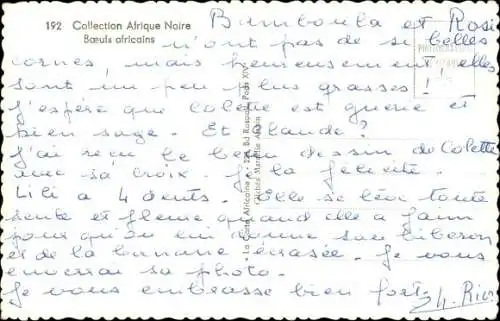 192 Collection Afrique Noire
Bœufs africains
Bumboula et Rose
n'ont pas de si belles
cornes mais heureusement elles
sont un peu plus grasses!
J'espère que Colette est guérie et
bien sage. Et Claude?
J'ai reçu le beau dessin de Colette
avec sa croix. Je la félicite.
Lili a 4 dents. Elle se lève toute
seule et pleure quand elle a faim
pour qu'on lui donne son biberon
et de la banane écrasée. Je vous
enverrai sa photo.
Je vous embrasse bien fort.
La Carte Africaine - 224, Bd Raspail, Paris XIVe